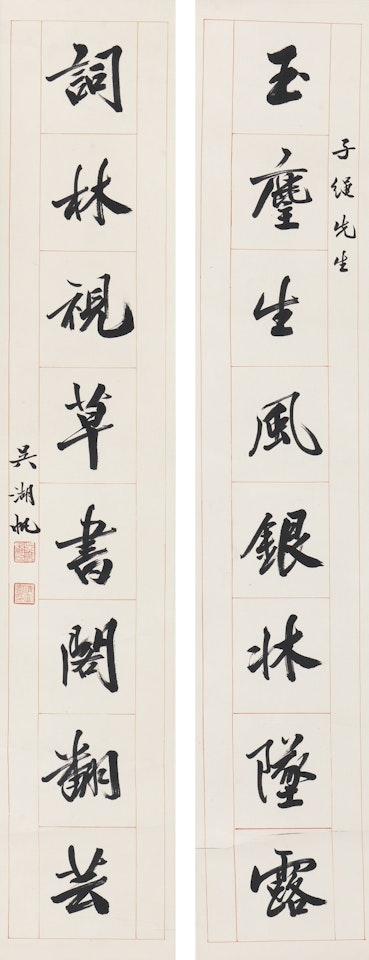 子繩先生
玉麈生風銀牀墜露
詞林視草書閣翻芸
吳湖帆